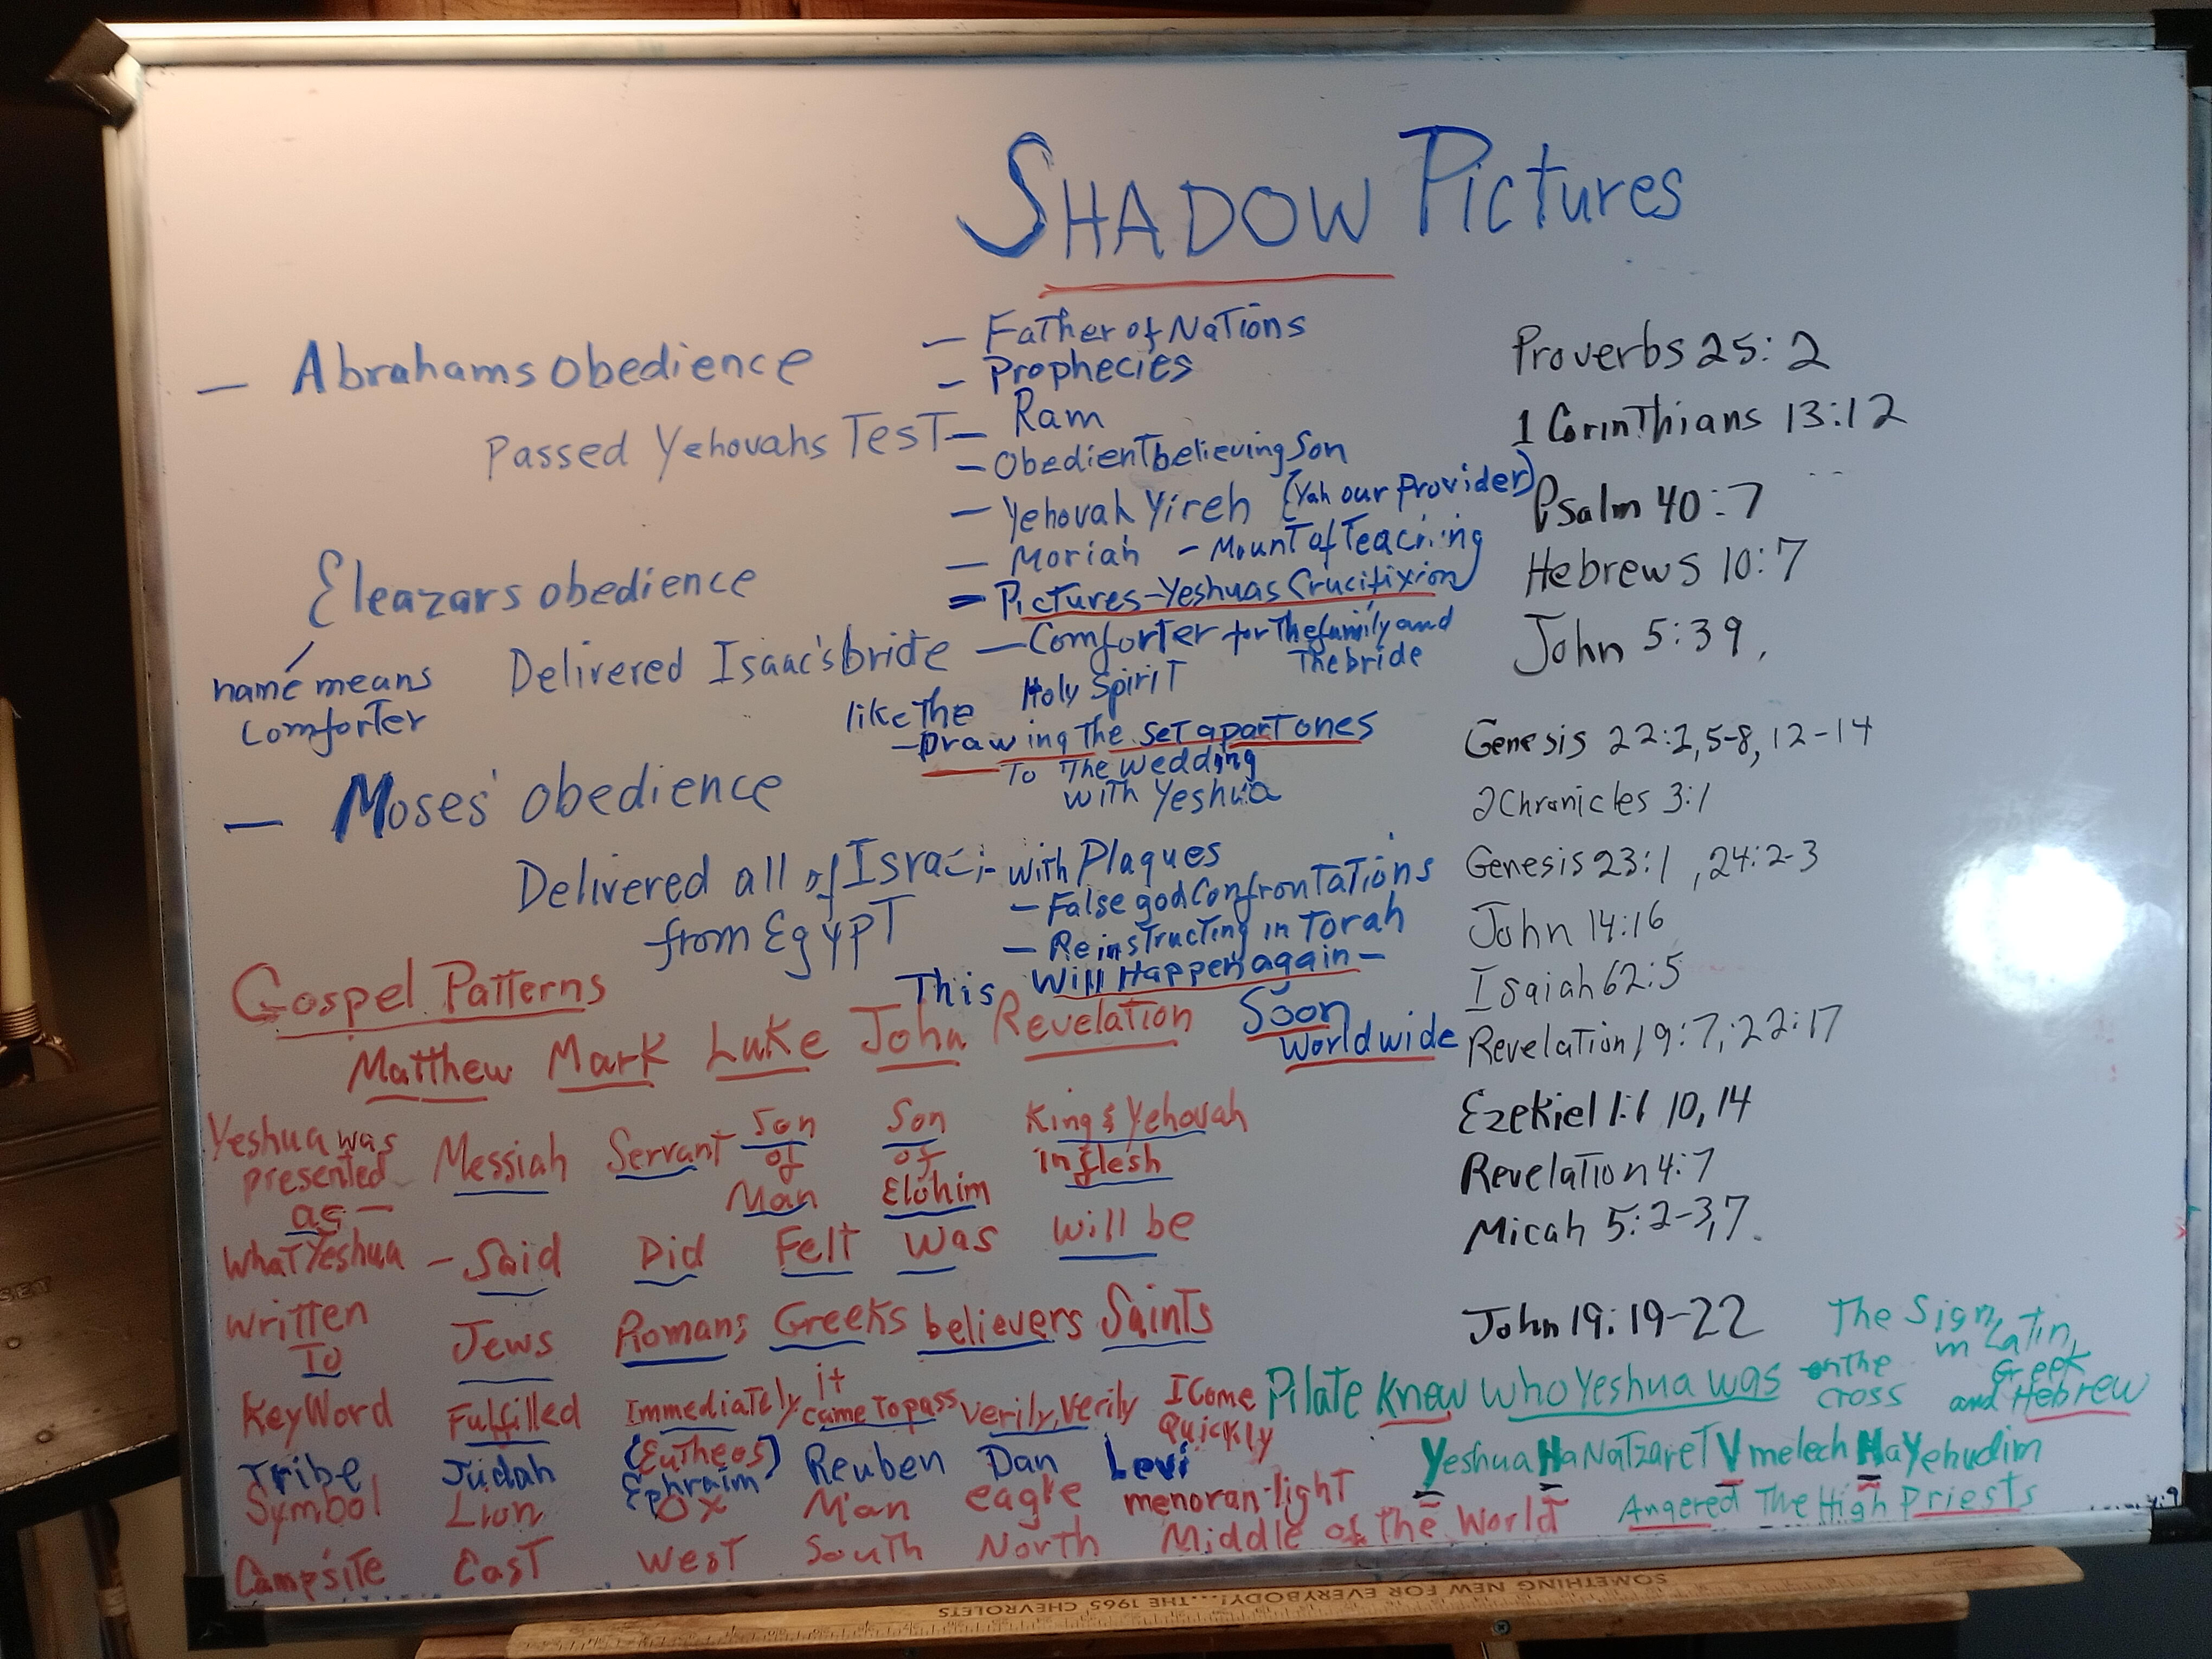 SHADOW Pictures
— Abrahams obedience
Passed Yehovahs Test
— Father of Nations
— Prophecies
— Ram
— Obedient believing Son
— Yehovah Yireh (Yah our Provider)
— Moriah - Mount of Teaching
— Pictures - Yeshuas Crucifixion
Eleazars obedience
name means
Comforter
Delivered Isaac's bride
— Comforter for the family and
the bride
like the Holy Spirit
— Drawing the set apart ones
To The wedding
with Yeshua
— Moses' obedience
Delivered all of
from Egypt
- with Plagues
— False god Confrontations
— Reinstructing in Torah
This Will Happen again —
Soon
Worldwide
Proverbs 25:2
1 Corinthians 13:12
Psalm 40:7
Hebrews 10:7
John 5:39,
Genesis 22:2, 5-8, 12-14
2 Chronicles 3:1
Genesis 23:1, 24:2-3
John 14:16
Isaiah 62:5
Revelation 19:7; 22:17
Ezekiel 1:1 10, 14
Revelation 4:7
Micah 5:2-3, 7.
John 19:19-22
Gospel Patterns
Matthew Mark Luke John Revelation
Yeshua was presented as — Messiah Servant Son of Man Son of Elohim King & Yehovah in flesh
What Yeshua — Said Did Felt Was will be
Written To Jews Romans Greeks believers Saints
Key Word Fulfilled Immediately (Eutheos) it came to pass Verily, Verily I Come Quickly
Tribe Judah Ephraim Reuben Dan Levi
Symbol Lion Ox Man eagle menorah-light
Campsite East West South North Middle of the World
Pilate Knew who Yeshua was on the cross
The Sign, in Latin, Greek and Hebrew
Yeshua HaNatzaret V melech HaYehudim
Angered The High Priests
SOMETHING NEW FOR EVERYBODY!...THE 1965 CHEVROLETS